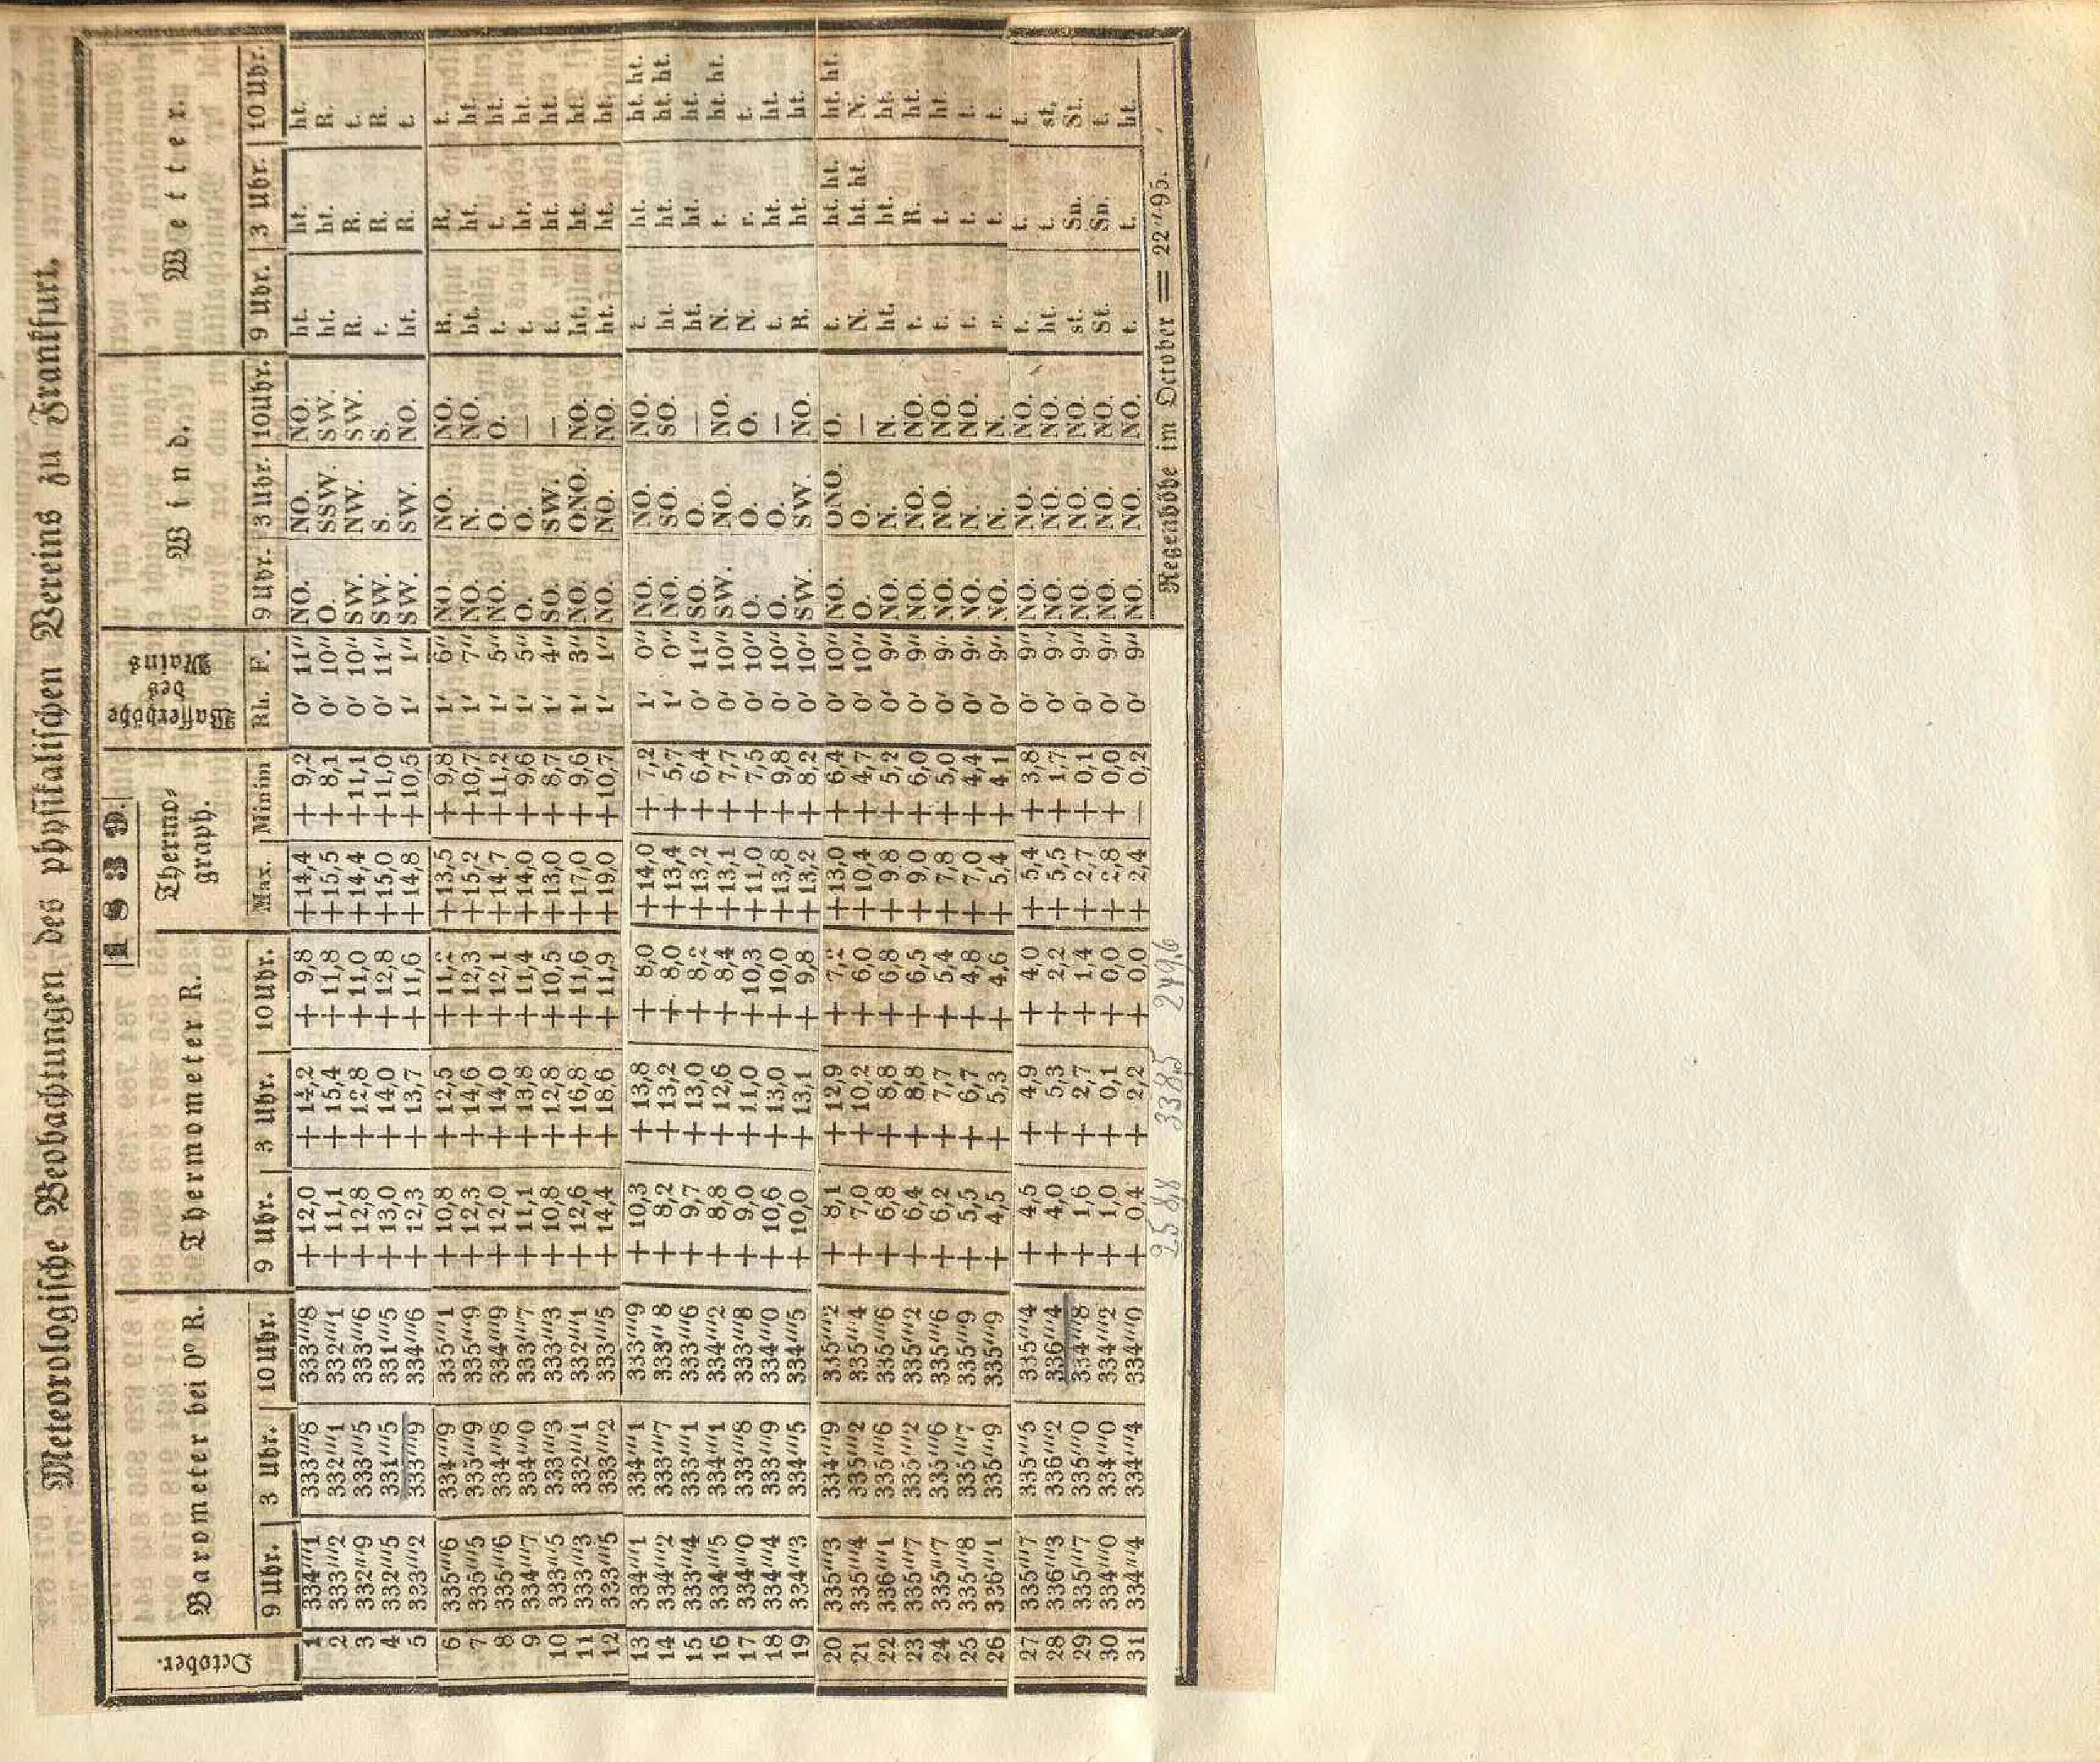 Meteorologische Beobachtungen des physikalischen Vereins zu Frankfurt.
1839.
October. Barometer bei 0° R. Thermometer R. Thermograph. Wasserhöhe des Mains Wind. Wetter.
9 Uhr. 3 Uhr. 10 Uhr. 9 Uhr. 3 Uhr. 10 Uhr. Max. Minim Rh. F. 9 Uhr. 3 Uhr. 10 Uhr. 9 Uhr. 3 Uhr. 10 Uhr.
1 334'''1 333'''8 333'''8 + 12,0 + 14,2 + 9,8 +14,4 + 9,2 0' 11'' NO. NO. NO. ht. ht. ht.
2 333'''2 332'''1 332'''1 + 11,1 + 15,4 + 11,8 +15,5 + 8,1 0' 10'' O. SSW. SW. ht. ht. R.
3 332'''9 333'''5 333'''6 + 12,8 + 12,8 + 11,0 +14,4 +11,1 0' 10'' SW. NW. SW. R. R. t.
4 332'''5 331'''5 331'''5 + 13,0 + 14,0 + 12,8 +15,0 +11,0 0' 11'' SW. S. S. t. R. R.
5 333'''2 333'''9 334'''6 + 12,3 + 13,7 + 11,6 +14,8 +10,5 1' 1'' SW. SW. NO. ht. R. t.
6 335'''6 334'''9 335'''1 + 10,8 + 12,5 + 11,2 +13,5 + 9,8 1' 6'' NO. NO. NO. R. R. t.
7 335'''5 335'''9 335'''9 + 12,3 + 14,6 + 12,3 +15,2 +10,7 1' 7'' NO. N. NO. ht. ht. ht.
8 335'''6 334'''8 334'''9 + 12,0 + 14,0 + 12,1 +14,7 +11,2 1' 5'' NO. O. O. t. t. ht.
9 334'''7 334'''0 333'''7 + 11,1 + 13,8 + 11,4 +14,0 + 9,6 1' 5'' O. O. — t. ht. ht.
10 333'''5 333'''3 333'''3 + 10,8 + 12,8 + 10,5 +13,0 + 8,7 1' 4'' SO. SW. — t. ht. ht.
11 333'''3 332'''1 332'''1 + 12,6 + 16,8 + 11,6 +17,0 + 9,6 1' 3'' NO. ONO. NO. ht. ht. ht.
12 333'''5 333'''2 333'''5 + 14,4 + 18,6 + 11,9 +19,0 +10,7 1' 1'' NO. NO. NO. ht. ht. ht.
13 334'''1 334'''1 333'''9 + 10,3 + 13,8 + 8,0 +14,0 + 7,2 1' 0'' NO. NO. NO. t. ht. ht. ht.
14 334'''2 333'''7 333'''8 + 8,2 + 13,2 + 8,0 +13,4 + 5,7 1' 0'' NO. SO. SO. ht. ht. ht. ht.
15 333'''4 333'''1 333'''6 + 9,7 + 13,0 + 8,2 +13,2 + 6,4 0' 11'' SO. O. — ht. ht. ht.
16 334'''5 334'''1 334'''2 + 8,8 + 12,6 + 8,4 +13,1 + 7,7 0' 10'' SW. NO. NO. N. t. ht. ht.
17 334'''0 333'''8 333'''8 + 9,0 + 11,0 + 10,3 +11,0 + 7,5 0' 10'' O. O. O. N. r. t.
18 334'''4 333'''9 334'''0 + 10,6 + 13,0 + 10,0 +13,8 + 9,8 0' 10'' O. O. — t. ht. ht.
19 334'''3 334'''5 334'''5 + 10,0 + 13,1 + 9,8 +13,2 + 8,2 0' 10'' SW. SW. NO. R. ht. ht.
20 335'''3 334'''9 335'''2 + 8,1 + 12,9 + 7,2 +13,0 + 6,4 0' 10'' NO. ONO. O. t. ht. ht. ht. ht.
21 335'''4 335'''2 335'''4 + 7,0 + 10,2 + 6,0 +10,4 + 4,7 0' 10'' O. O. — N. ht. ht. N.
22 336'''1 335'''6 335'''6 + 6,8 + 8,8 + 6,8 + 9,8 + 5,2 0' 9'' NO. N. N. ht. ht. ht.
23 335'''7 335'''2 335'''2 + 6,4 + 8,8 + 6,5 + 9,0 + 6,0 0' 9'' NO. NO. NO. t. R. ht.
24 335'''7 335'''6 335'''6 + 6,2 + 7,7 + 5,4 + 7,8 + 5,0 0' 9'' NO. NO. NO. t. t. ht.
25 335'''8 335'''7 335'''9 + 5,5 + 6,7 + 4,8 + 7,0 + 4,4 0' 9'' NO. N. NO. t. t. t.
26 336'''1 335'''9 335'''9 + 4,5 + 5,3 + 4,6 + 5,4 + 4,1 0' 9'' NO. N. N. t. t.
27 335'''7 335'''5 335'''4 + 4,5 + 4,9 + 4,0 + 5,4 + 3,8 0' 9'' NO. NO. NO. t. t. t.
28 336'''3 336'''2 336'''4 + 4,0 + 5,3 + 2,2 + 5,5 + 1,7 0' 9'' NO. NO. NO. ht. t. st.
29 335'''7 335'''0 334'''8 + 1,6 + 2,7 + 1,4 + 2,7 + 0,1 0' 9'' NO. NO. NO. st. Sn. St.
30 334'''0 334'''0 334'''2 + 1,0 + 0,1 + 0,0 + 2,8 + 0,0 0' 9'' NO. NO. NO. St. Sn. t.
31 334'''4 334'''4 334'''0 + 0,4 + 2,2 + 0,0 + 2,4 — 0,2 0' 9'' NO. NO. NO. t. t. ht.
Regenhöhe im October = 22'''95.
258,8 338,5 249,6